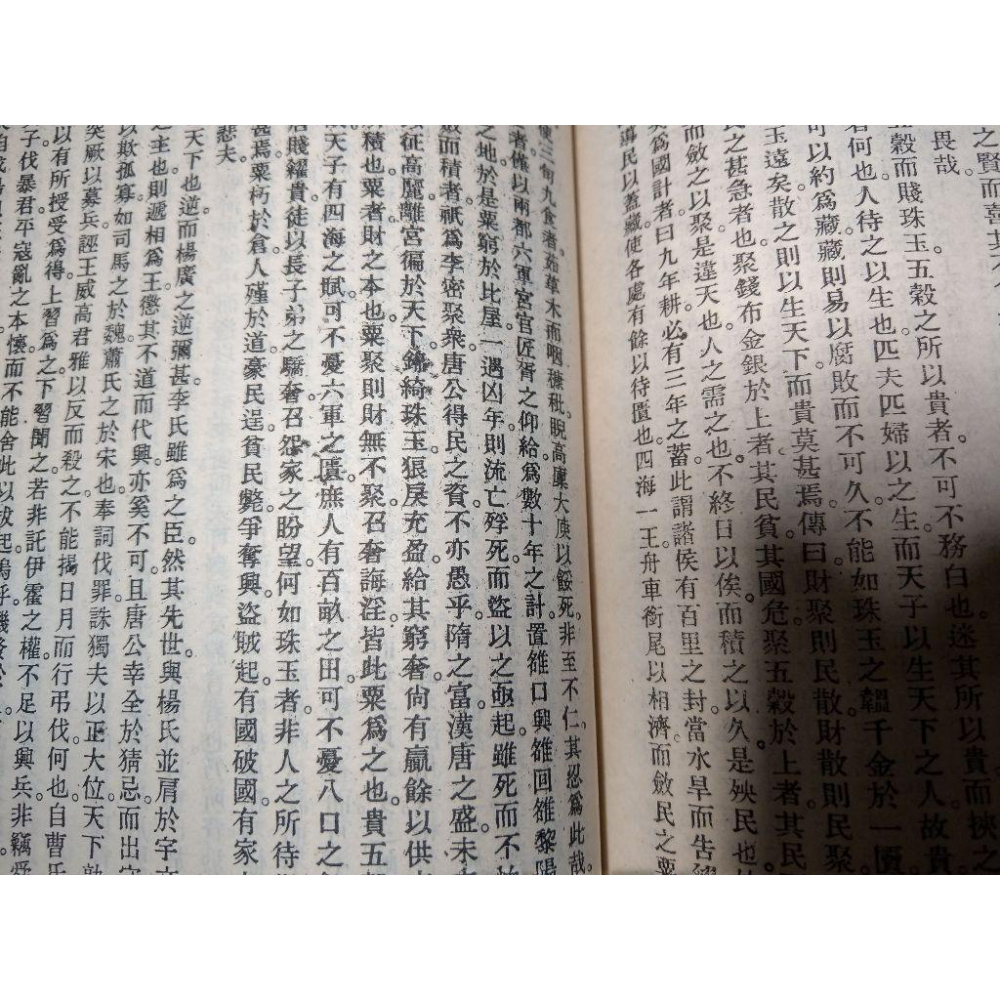 之賢而喜其不
畏哉。
五穀而賤珠玉。五穀之所以貴者。不可不務白也。迷其所以貴而挾之
若何也。人待之以生也。匹夫匹婦以之生。而天子以生天下之人。故貴
可以約爲藏。藏則易以腐敗而不可久。不能如珠玉之韞千金於一匱
玉遠矣。散之則以生天下而貴莫甚焉。傳曰。財聚則民散。財散則民聚
民之甚急者也。聚錢布金銀於上者。其民貧。其國危。聚五穀於上者。其民
而斂之以聚。是違天也。人之需之也。不終日以俟。而積之以久。是殃民也
爲國計者。曰九年耕。必有三年之蓄。此謂諸侯有百里之封。當水旱而告
導民以蓋藏。使各處有餘以待匱也。四海一王。舟車銜尾以相濟。而斂民之粟
三旬九食者。茹草木而咽穅秕。睨高廩大庾以餒死。非至不仁。其忍爲此哉
者。惟以兩都六軍宮官匠胥之仰給。爲數十年之計。置雒口興雒回雒黎陽
之地。於是粟窮於比屋。一遇凶年。則流亡殍死。而盜以之亟起。雖死而不
斂而積者。祇爲李密聚衆。唐公得民之資。不亦愚乎。隋之富。漢唐之盛未
征高麗。離宮徧於天下。錦綺珠玉狼戾充盈。給其窮奢。尙有贏餘以供
積也。粟者財之本也。粟聚則財無不聚。召奢誨淫。皆此粟爲之也。貴五
天子有四海之賦。可不憂六軍之匱。庶人有百畝之田。可不憂八口之
賤糴。貴徒以長子弟之驕奢。召怨家之盼望。何如珠玉者。非人之所待
甚焉。粟朽於倉。人殣於道。豪民逞。貧民斃。爭奪興。盜賊起。有國破國。有家
悲夫。
天下也逆。而楊廣之逆彌甚。李氏雖爲之臣。然其先世與楊氏並肩於宇
之主也。則遞相爲王。懲其不道而代興。亦奚不可。且唐公幸全於猜忌。而出守
以欺孤寡。如司馬之於魏。蕭氏之於宋也。奉詞伐罪。誅獨夫以正大位。天下孰
突厥以募兵。誣王威高君雅以反而殺之。不能揭日月而行弔伐。何也。自曹氏
以有所授受爲得。上習爲之。下習聞之。若非託伊霍之權。不足以興兵。非竊受
子伐暴君平寇亂之本懷。而不能舍此以